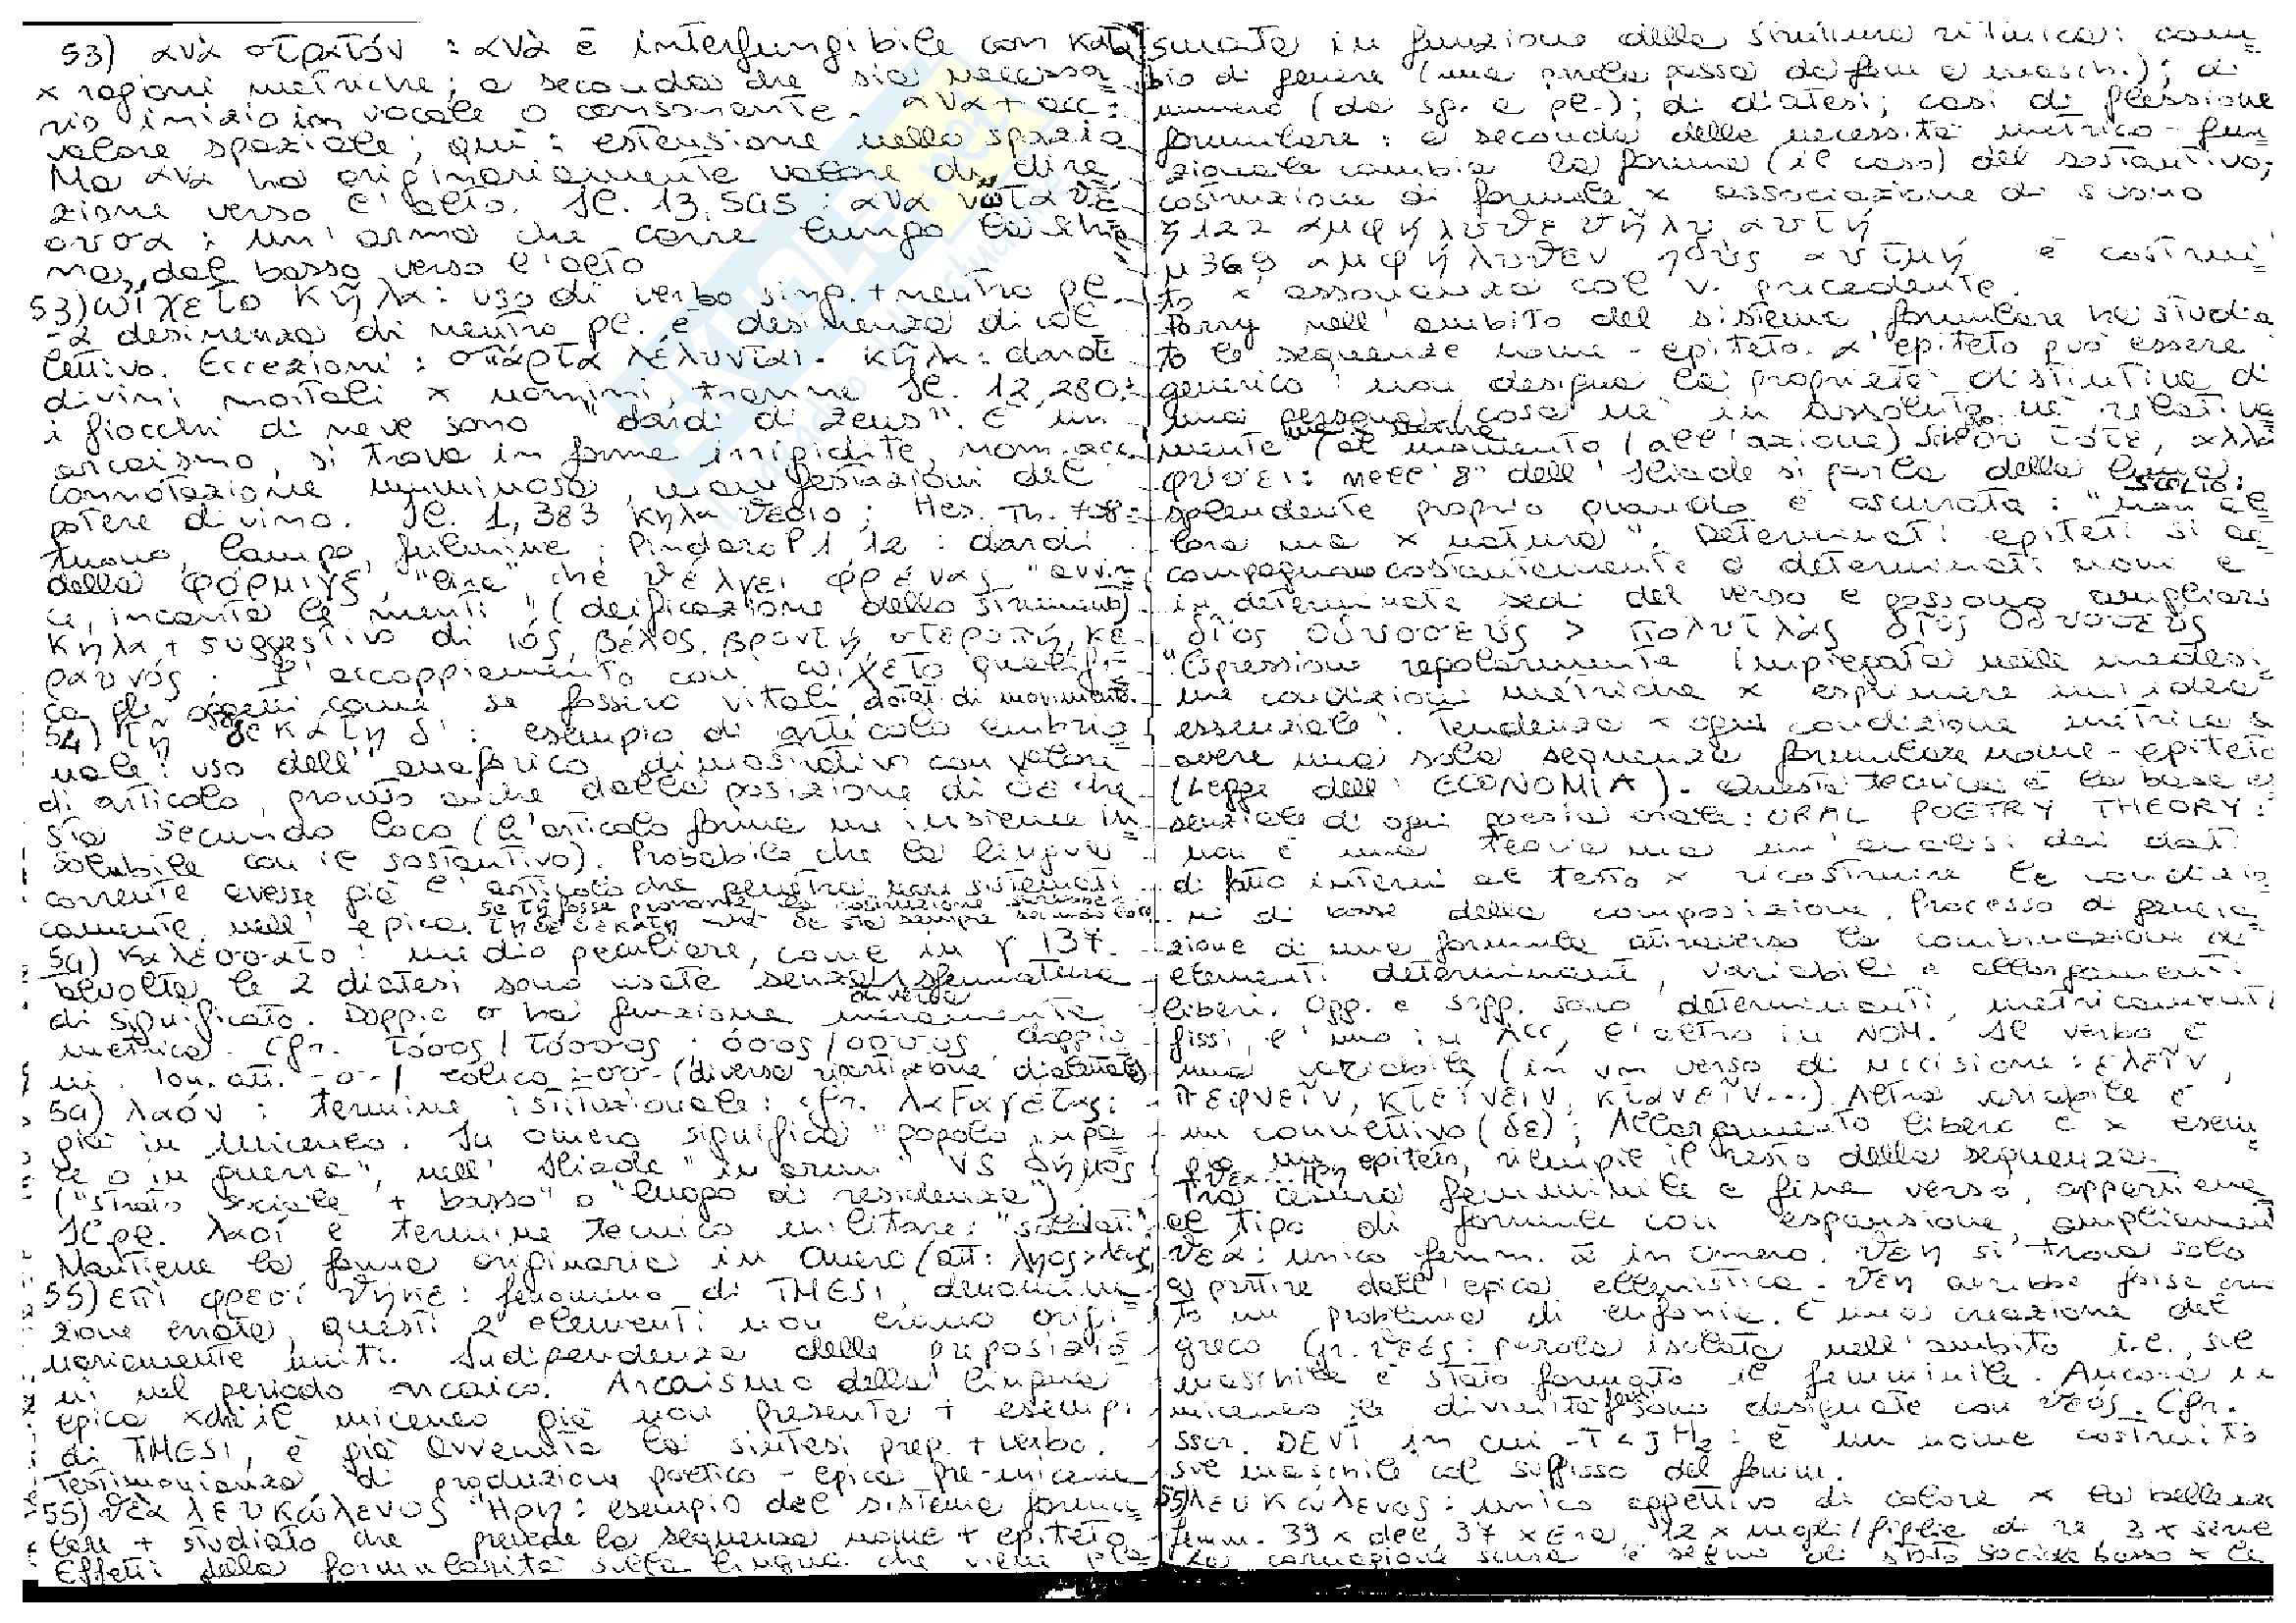 53) ἀνὰ στρατόν : ἀνὰ è interfungibile con κατὰ
x ragioni metriche; a seconda che sia necessa=
rio inizio in vocale o consonante. ἀνα + acc:
valore spaziale; qui: estensione nello spazio
Ma ἀνα ha originariamente valore di dire
zione verso l'alto. Il. 13, 545: ἀνα νῶτα θέ=
ουσα : un'arma che corre lungo la schie=
na, dal basso verso l'alto
53) ᾤχετο κῆλα: uso di verbo sing. + neutro pl.
-ᾰ desinenza di neutro pl. è desinenza di col
lettivo. Eccezioni: σπάρτα λέλυνται. κῆλα: dardi
divini mortali x uomini, tranne Il. 12, 280:
i fiocchi di neve sono "dardi di Zeus". È un
arcaismo, si trova in forme irrigidite, non
connotazione numinosa, manifestazioni del
potere divino. Il. 1, 383 κῆλα θεοῖο; Hes. Th. 708=
tuono, lampo, fulmine; Pindaro P1 12: dardi
della φόρμιγξ, "lira" che θέλγει φρένας "avvin
ce, incanta le menti" (deificazione dello strumento)
κῆλα + suggestivo di ἰός, βέλος, βροντή, στεροπή, κε-
ραυνός. L'accoppiamento con ᾤχετο qualifi=
ca gli oggetti come se fossero vitali, dotati di movimento.
54) τῇ δεκάτῃ δ': esempio di articolo embrio=
nale: uso dell'anaforico dimostrativo con valore
di articolo, provato anche dalla posizione di δέ che
sta secundo loco (l'articolo forma un insieme in=
solubile con il sostantivo). Probabile che la lingua
corrente avesse già l'articolo che penetra non sistemati
camente nell'epica.
54) καλέσσατο: medio peculiare, come in γ 137.
talvolta le 2 diatesi sono usate senza sfumature
diverse
di significato. Doppio σ ha funzione meramente
metrica. Cfr. τόσος/τόσσος; ὅσος/ὅσσος, doppio
ni. Ion. att. -σ-/ eolico -σσ- (diversa ripartizione dialettale)
54) λαόν: termine istituzionale: cfr. λαϝαγέτας:
già in Miceneo. In Omero significa "popolo in pa
ce o in guerra", nell'Iliade "in armi" VS δῆμος
("strato sociale + basso" o "luogo di residenza")
Il pl. λαοί è termine tecnico militare: "soldati".
Mantiene la forma originaria in Omero
55) ἐπὶ φρεσὶ θῆκε: fenomeno di TMESI, denomina=
zione errata, questi 2 elementi non erano origi
nariamente uniti. Indipendenza delle preposizio
ni nel periodo arcaico. Arcaismo della lingua
epica xché il miceneo già non presenta + esempi
di TMESI, è già avvenuta la sintesi prep. + verbo.
Testimonianza di produzione poetico-epica pre-micenea
55) θεὰ λευκώλενος Ἥρη: esempio del sistema formu
lare + studiato che prevede la sequenza nome + epiteto
Effetti della formularità sulla lingua che viene pla=
smata in funzione della struttura ritmica: cam=
bio di genere (una parola passa da fem a masch.); di
numero (da sg. a pl.); di diatesi; casi di flessione
formulare: a seconda delle necessità metrico-fun
zionale cambia la forma (il caso) del sostantivo;
costruzione di formule x associazione di suono
ζ 122 ἀμφήλυθε θῆλυς αὐτή
μ 369 ἀμφήλυθεν ἡδὺς ἀυτμή è costrui
to x assonanza col v. precedente.
Parry nell'ambito del sistema formulare ha studia
to le sequenze nome-epiteto. L'epiteto può essere
generico: non designa la proprietà distintiva di
una persona/cosa né in assoluto né relativa
mente al momento (all'azione) οὐ τότε, ἀλλὰ
φύσει: nell'8° dell'Iliade si parla della luna
splendente proprio quando è oscurata: SCOLIO: "non al
lora ma x natura". Determinati epiteti si ac
compagnano costantemente a determinati nomi e
in determinate sedi del verso e possono ampliarsi
δῖος Ὀδυσσεύς > πολύτλας δῖος Ὀδυσσεύς
"Espressione regolarmente impiegata nelle medesi
me condizioni metriche x esprimere un'idea
essenziale". Tendenza x ogni condizione metrica a
avere una sola sequenza formulare nome-epiteto
(Legge dell'ECONOMIA). Questa tecnica è la base es
senziale di ogni poesia orale: ORAL POETRY THEORY:
non è una teoria ma un'analisi dei dati
di fatto interni al testo x ricostruire le condizio
ni di base della composizione. Processo di genera
zione di una formula attraverso la combinazione di
elementi determinanti, variabili e allargamenti
liberi. Ogg. e sogg. sono determinanti, metricamente
fissi, l'uno in ACC, l'altro in NOM. Il verbo è
una variabile (in un verso di uccisione: ἑλεῖν,
πεφνεῖν, κτείνειν, κτανεῖν...) Altra variabile è
un connettivo (δέ); Allargamento libero è x esem
pio un epiteto, riempie il resto della sequenza.
θεὰ...Ἥρη
Tra cesura femminile e fine verso, appartiene
al tipo di formule con espansione, ampliamenti
θεά: unico femm. ᾱ in Omero. θεή si trova solo
a partire dall'epica ellenistica. θεή avrebbe forse crea
to un problema di eufonia. È una creazione del
greco Gr. θεός: parola isolata nell'ambito i.e., sul
maschile è stato formato il femminile. Ancora in
miceneo le divinità fem sono designate con θεός. Cfr.
sscr. DEVI in cui -I < jH₂: è un nome costruito
sul maschile col suffisso del femm.
55) λευκώλενος: unico aggettivo di colore x la bellezza
femm. 39 x dee, 37 x Era, 12 x mogli/figlie di re 3 x serve
La carnagione scura è segno di stato sociale basso x le